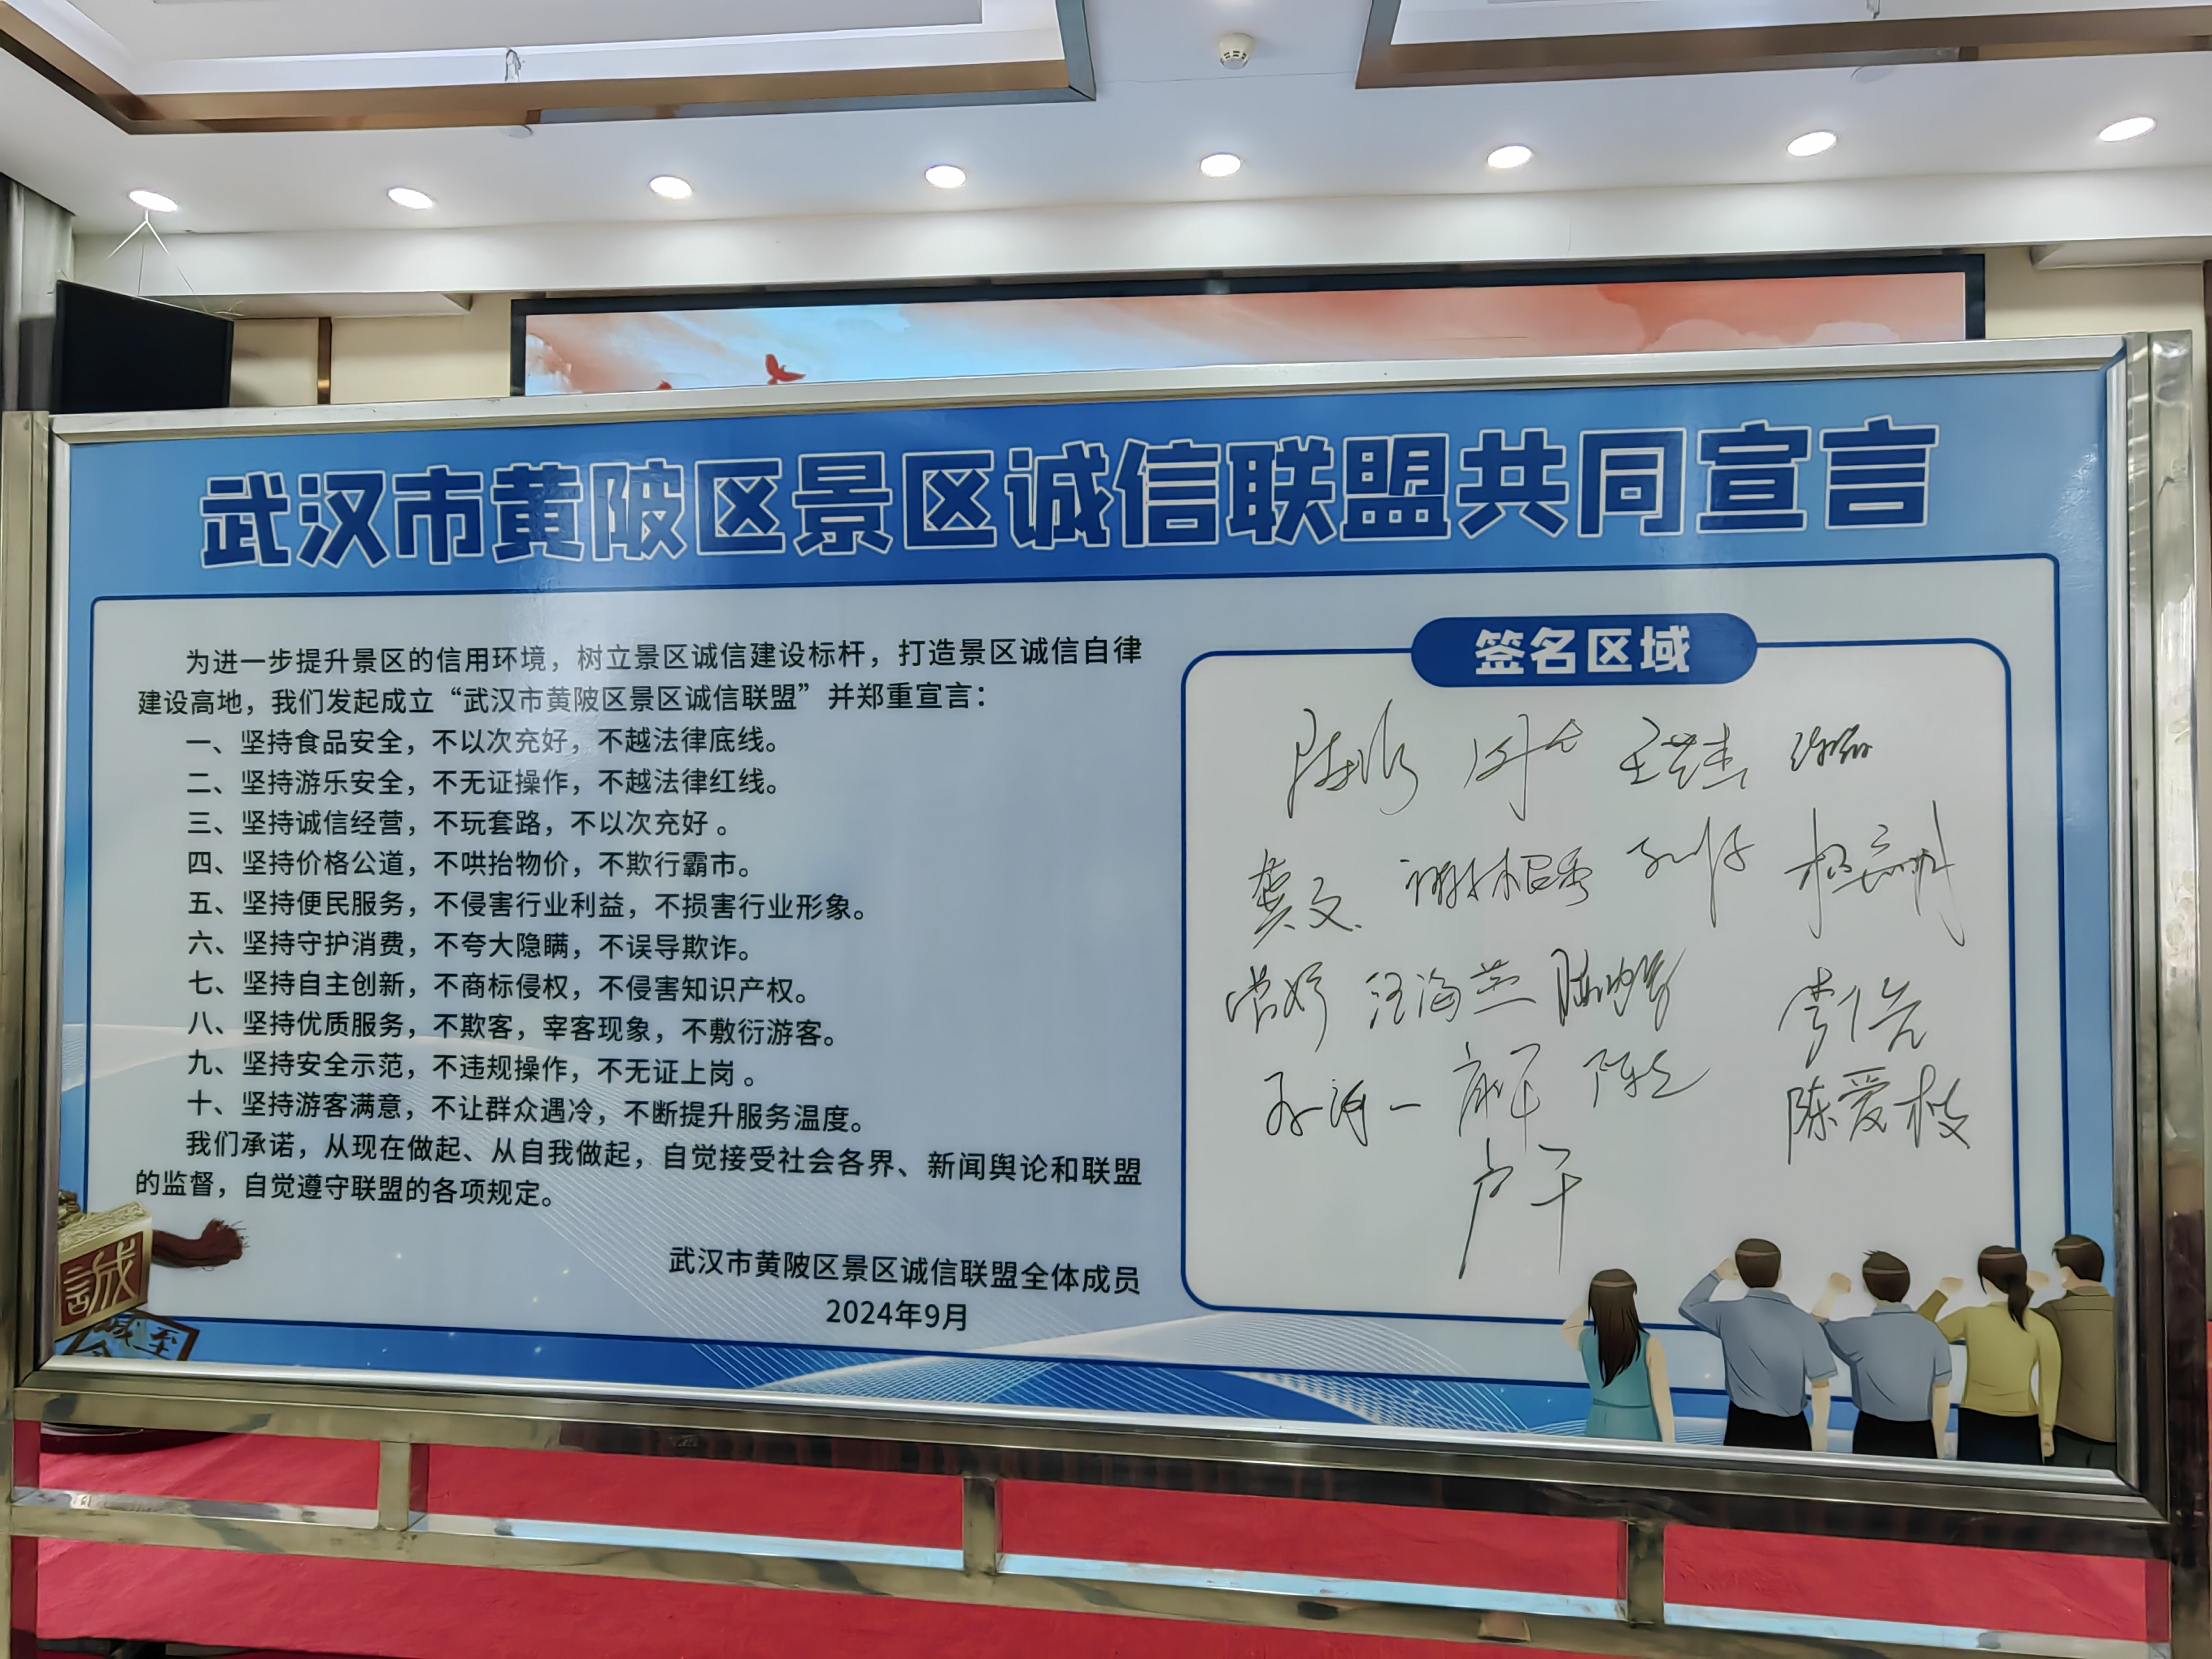 武汉市黄陂区景区诚信联盟共同宣言
为进一步提升景区的信用环境，树立景区诚信建设标杆，打造景区诚信自律
建设高地，我们发起成立“武汉市黄陂区景区诚信联盟”并郑重宣言：
一、坚持食品安全，不以次充好，不越法律底线。
二、坚持游乐安全，不无证操作，不越法律红线。
三、坚持诚信经营，不玩套路，不以次充好 。
四、坚持价格公道，不哄抬物价，不欺行霸市。
五、坚持便民服务，不侵害行业利益，不损害行业形象。
六、坚持守护消费，不夸大隐瞒，不误导欺诈。
七、坚持自主创新，不商标侵权，不侵害知识产权。
八、坚持优质服务，不欺客，宰客现象，不敷衍游客。
九、坚持安全示范，不违规操作，不无证上岗 。
十、坚持游客满意，不让群众遇冷，不断提升服务温度。
我们承诺，从现在做起、从自我做起，自觉接受社会各界、新闻舆论和联盟
的监督，自觉遵守联盟的各项规定。
武汉市黄陂区景区诚信联盟全体成员
2024年9月
誠
签名区域
龚文
汪海兰
陈爱枝